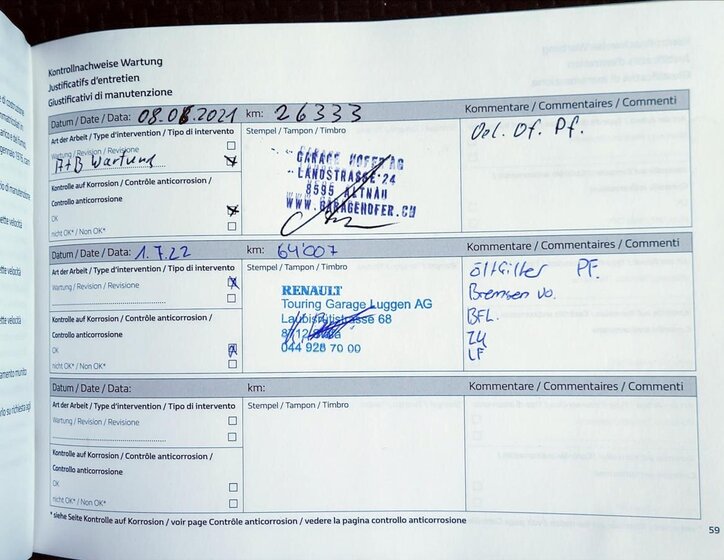 Kontrollnachweise Wartung
Justificatifs d'entretien
Giustificativi di manutenzione
Datum / Date / Data: 08.06.2021 km: 26333 Kommentare / Commentaires / Commenti
Art der Arbeit / Type d'intervention / Tipo di intervento
Wartung / Revision / Revisione
A+B Wartung
Kontrolle auf Korrosion / Contrôle anticorrosion /
Controllo anticorrosione
OK
nicht OK* / Non OK*
Stempel / Tampon / Timbro
GARAGE HOFER AG
LANDSTRASSE 24
8595 ALTNAU
WWW.GARAGEHOFER.CH
Oel. Of. Pf.
Datum / Date / Data: 1.7.22 km: 64'007 Kommentare / Commentaires / Commenti
Art der Arbeit / Type d'intervention / Tipo di intervento
Wartung / Revision / Revisione
Kontrolle auf Korrosion / Contrôle anticorrosion /
Controllo anticorrosione
OK
nicht OK* / Non OK*
Stempel / Tampon / Timbro
RENAULT
Touring Garage Luggen AG
Laubisrütistrasse 68
8712
044 928 70 00
PF.
Bremsen vo.
BFL.
ZK
LF
Datum / Date / Data: km: Kommentare / Commentaires / Commenti
Art der Arbeit / Type d'intervention / Tipo di intervento
Wartung / Revision / Revisione
Kontrolle auf Korrosion / Contrôle anticorrosion /
Controllo anticorrosione
OK
nicht OK* / Non OK*
Stempel / Tampon / Timbro
* siehe Seite Kontrolle auf Korrosion / voir page Contrôle anticorrosion / vedere la pagina controllo anticorrosione
59